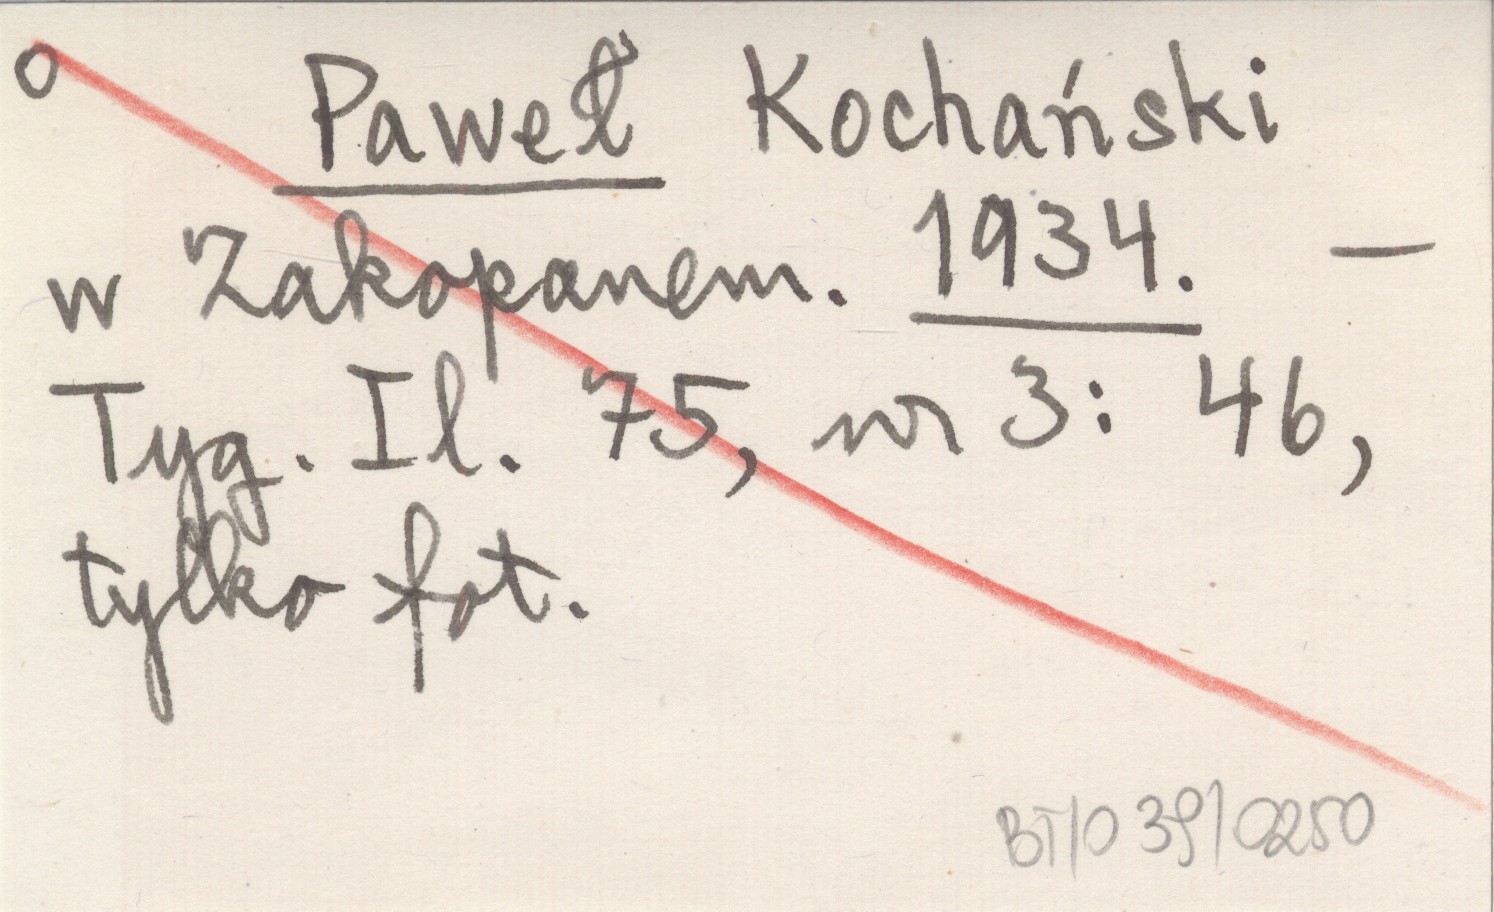 o Paweł Kochański
w Zakopanem. 1934. —
Tyg. Il. 75, nr 3: 46,
tylko fot.
BT/O 39/0250